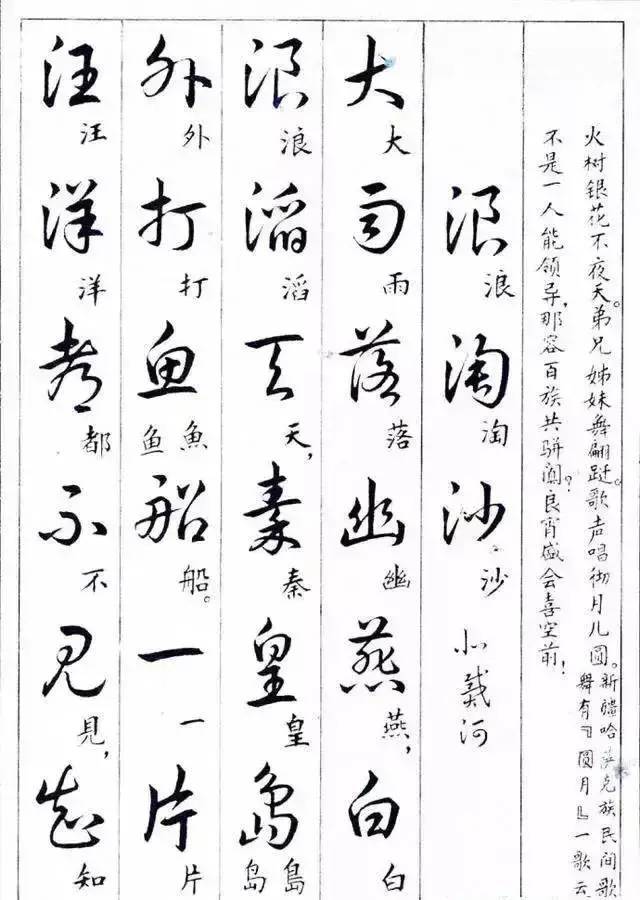 火树银花不夜天。弟兄姊妹舞翩跹。歌声唱彻月儿圆。
新疆哈萨克族民间歌
舞有『圆月』一歌云
不是一人能领导，那容百族共骈阗？良宵盛会喜空前！
浪淘沙 北戴河
浪淘沙。
大雨落幽燕白
大雨落幽燕，白
浪滔天秦皇岛
浪滔天，秦皇岛島
外打鱼船一片
外打鱼魚船。一片
汪洋都不见知
汪洋都不見，知